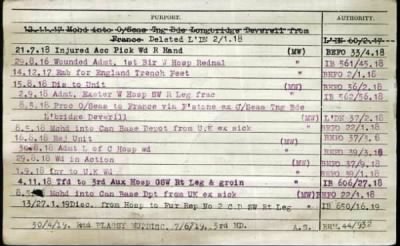 PURPORT. AUTHORITY.
12.11.17 Mohd into O/Seas Tng Bde Longbridge Deverell from
France. Deleted L'DN 2/1.18 L'DN 60/2.17
21.7.18 Injured Acc Pick Wd R Hand (MW) BEFO 33/4.18
29.8.16 Wounded Admt, 1st Bir W Hosp Rednal IB 561/45.18
14.12.17 Emb for England Trench Feet BEFO 2/1.18
15.8.18 Dis to Unit (MW) BEFO 36/2.18
7.9.18 Admt, Exeter W Hosp SW R Leg frac IB 562/36.18
8.5.18 Proc O/Seas to France via F'stone ex O/Seas Tng Bde
L'bridge Deverill (MW) L'DN 37/2.18
8.5.18 Mohd into Can Base Depot from U.K ex sick BEFO 22/1.18
16.8.18 Rej Unit (MW) BEFO 37/1.18
Admt L of C Hosp wd (MW) BEFO 39/3.18
29.8.18 Wd in Action (MW) BEFO 37/9.18
1.9.18 Inv to U.K Wd (MW) BEFO 39/1.18
4.11.18 Tfd to 3rd Aux Hosp GSW Rt Leg & groin IB 606/27.18
8.5. Mohd into Can Base Dpt from UK ex sick (MW) BEFO 22/1.18
13/27.1.19 Disc. from Hosp to Fur Rep No 2 C.D SW Rt Leg IB 650/16.19
30/4/19. Emd Disc. 7/6/19. 3rd MD. A.S. 44/932